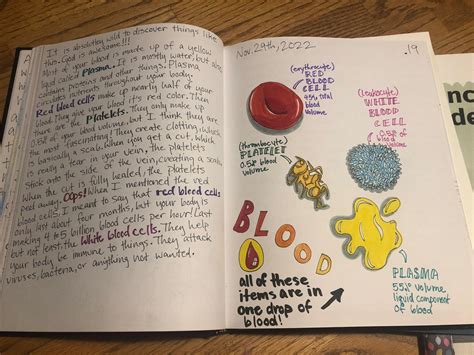 It is absolutely wild to discover things like
this. God is awesome!!!
Most of your blood is made up of a yellow
liquid called Plasma. It is mostly water, but also
contains proteins and other things. Plasma
circulates throughout your body.
Red blood cells make up nearly half of your
blood. They give your blood it's red color. Then
there are the Platelets. They only make up
0.5% of our blood volume, but I think they are
the most fascinating! They create clotting, which
is basically a scab. When you get a cut, which
is really a tear in your vein, the platelets
stick onto the side of the vein, creating a scab
when the cut is fully healed, the platelets
Oops! When I mentioned the red
blood cells, I meant to say that red blood cells
only last about four months, but your body is
making 4 to 5 billion blood cells per hour! Last
but not least, the White blood cells. They help
your body be immune to things. They attack
viruses, bacteria, or anything not wanted.
Nov. 29th, 2022
.19
(erythrocyte)
RED
BLOOD
CELL
45% total
blood
volume
(leukocyte)
WHITE
BLOOD
CELL
0.5% of
blood
volume
(thrombocyte)
PLATELET
0.5% of blood
volume
BLOOD
PLASMA
55% volume
liquid component
of blood
all of these
items are in
one drop of
blood!
nc
de